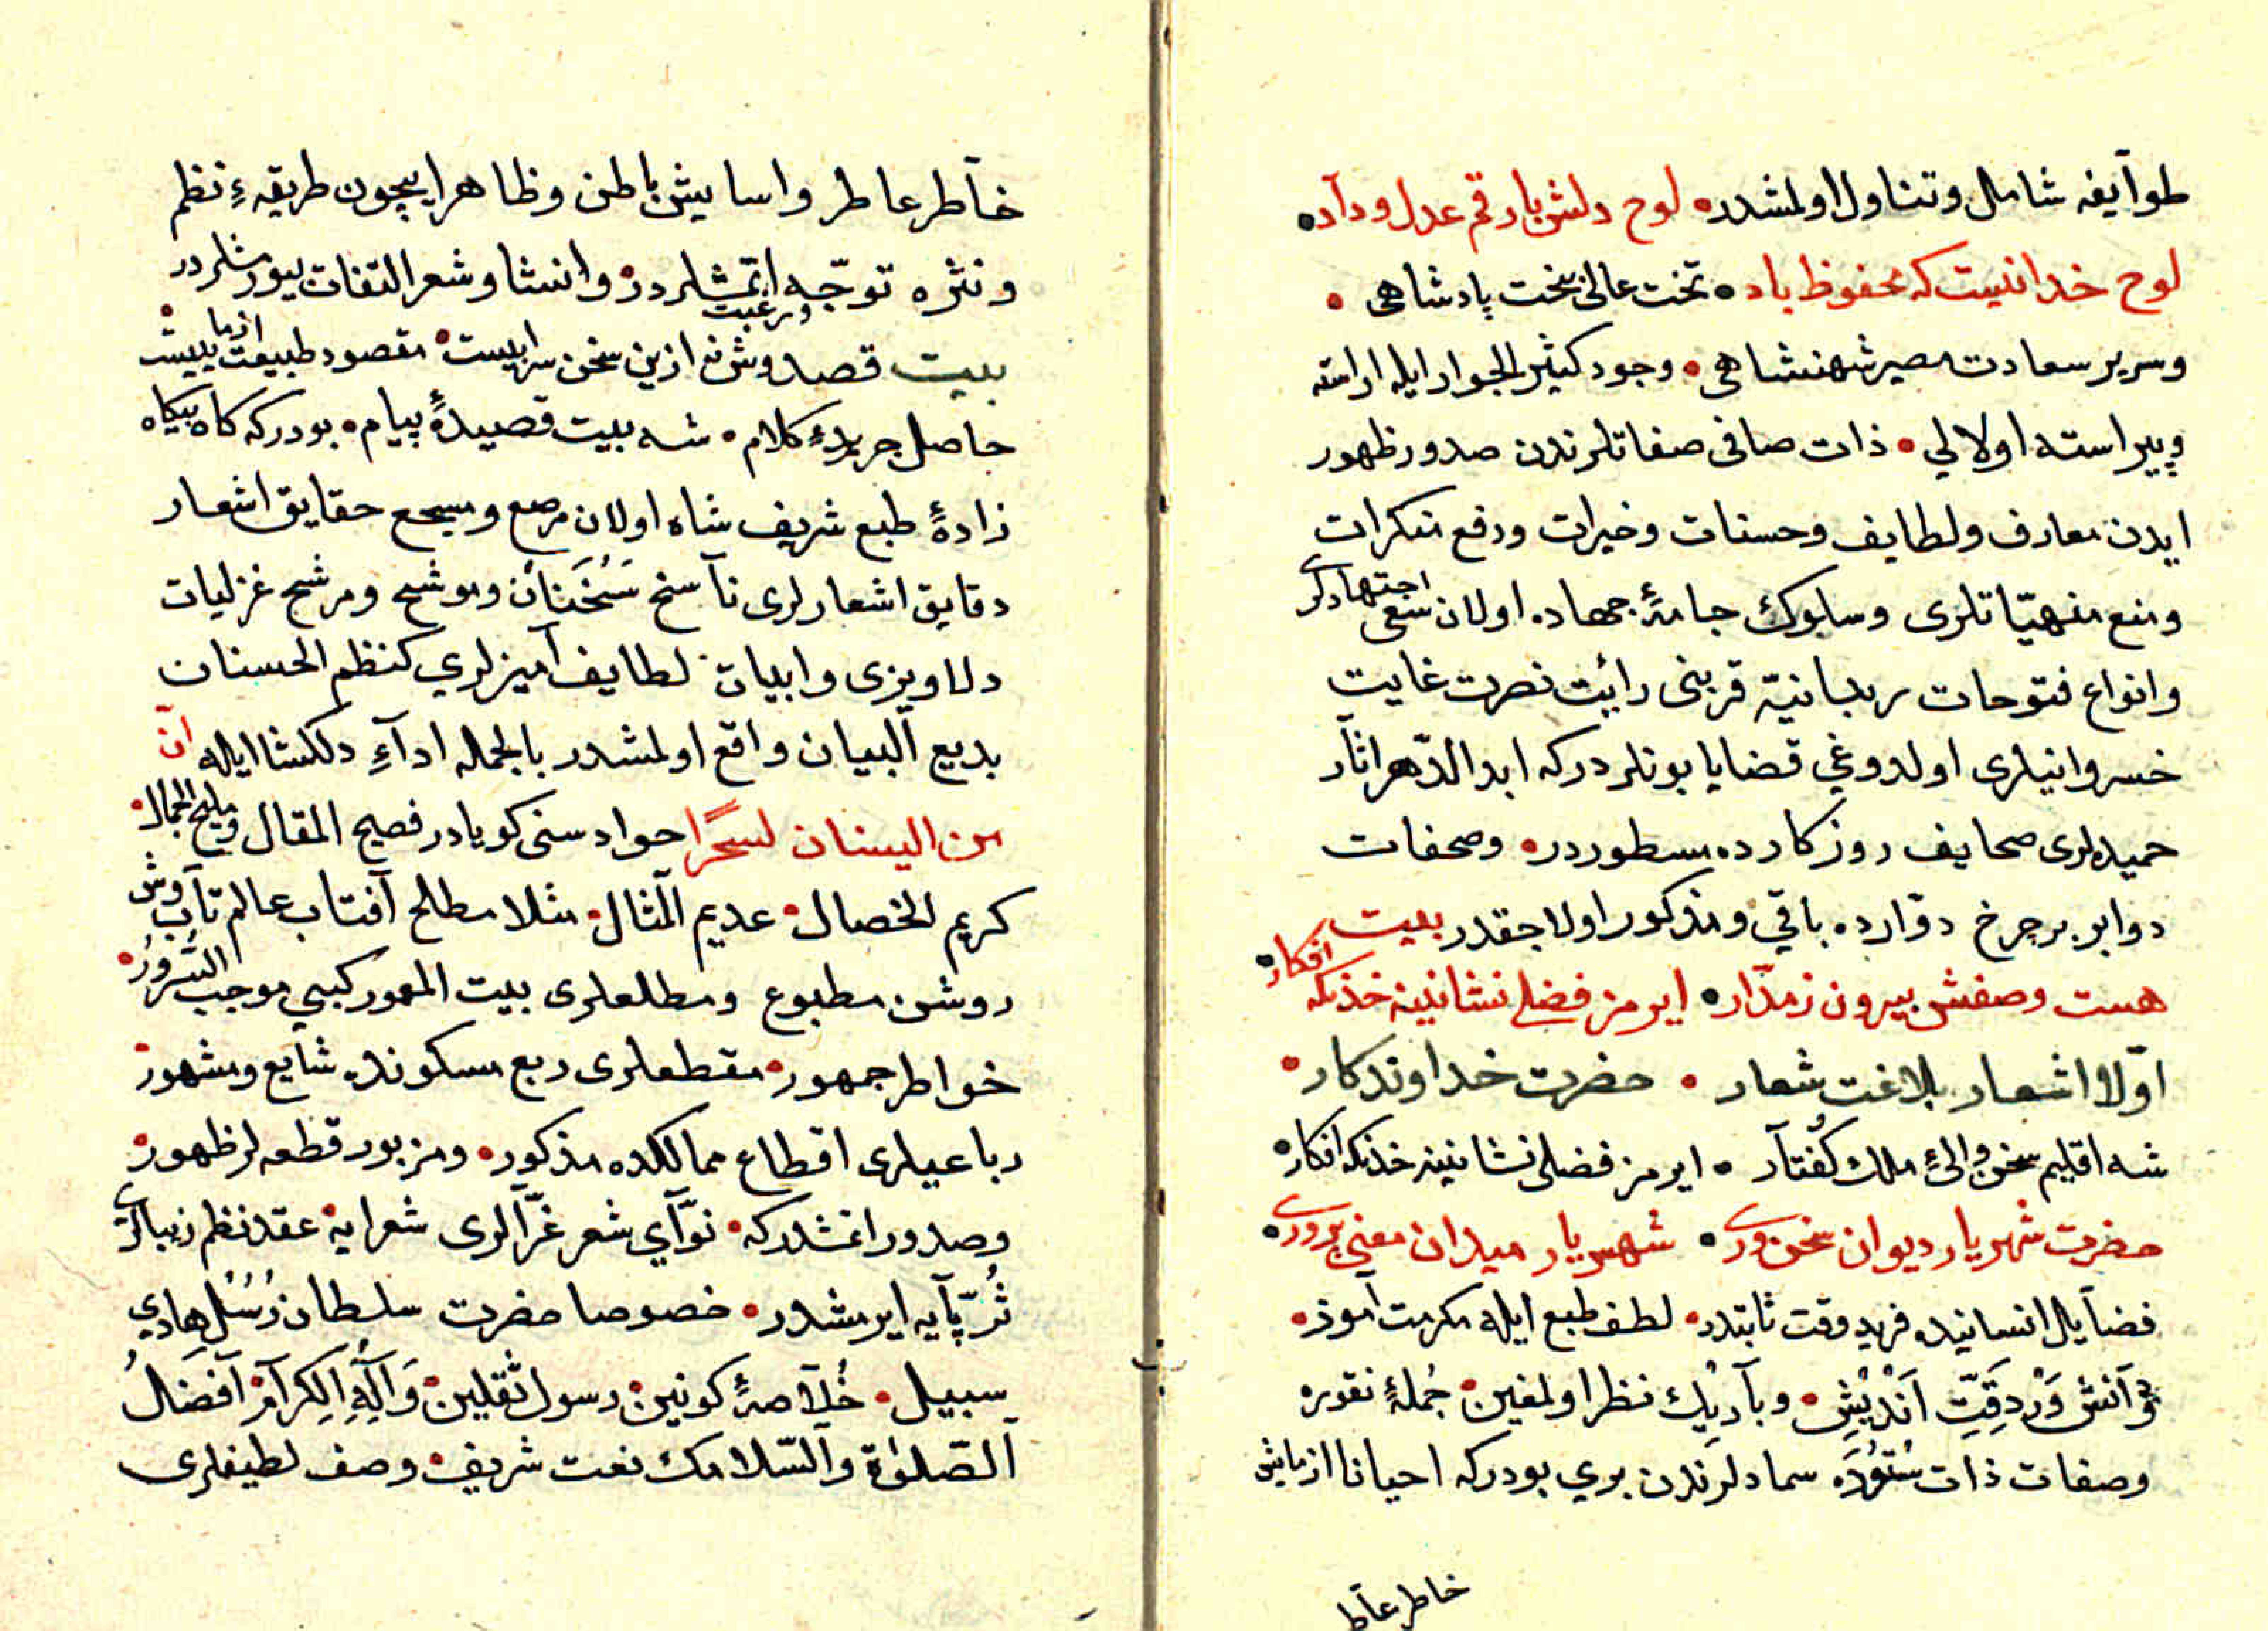 طوآيفه شامل و تناول اولمشدر• لوح دلش باد رقم عدل و دآد•
لوح خدا نيست كه محفوظ باد• تخت عالی بخت پادشاهی •
وسرير سعادت مصير شهنشاهی • وجود كثير الجود ايله اراسته
وپيراسته اولالي • ذات صافی صفاتلرندن صدور ظهور
ايدن معارف ولطايف وحسنات وخيرات ودفع منكرات
ومنع منهيّاتلری وسلوك جامهٔ جهاده اولان سعی اجتهادلری
وانواع فتوحات ربانيّه قرينی رائيت نصرت غايت
خسروانيلری اولدوغي قضايا بونلردركه ابد الدّهر اثآر
حميده لری صحايف روزكارده مسطوردر• وصحفات
دواير برچرخ دوّارده باقي ومذكور اولاجقدر بيت
هست وصفش بيرون زمدّار• ايرمز فضلی نشانينه خدنكه افكار•
اوّلا اشعار بلاغت شعار • حضرت خداوندكار •
شه اقليم سخن والیٔ ملك كُفتآر • ايرمز فضلی نشانينه خدنكه افكار•
حضرت شهريار ديوان سخن وری • شهريار ميدان معنی پروری•
فضآيل انسانيده فريد وقت ثابتدر• لطف طبع ايله مكرمت آموز•
وَآنش وَرْ دِقَّتِ اَنْدِيْشِ• وبآريك نظر اولمغين• جُملهٔ نقوره
وصفات ذات سُتوُدَه سمادلرَندن بري بودركه احيانا ازمايش
خاطر عآط
خآطر عاطر واسايش باطن وظاهر ايچون طريقهٔ نظم
ونثره توجّه ورغبت ايتمشلردر• وانشا وشعر التفات بيورمشلردر •
بيت قصد وش نه ازين سخن سراييست• مقصود طبيعت ازماييست
حاصل جريدهٔ كلام • شه بيت قصيدهٔ پيام • بودركه كاه بيكاه
زادهٔ طبع شريف شاه اولان مرصع ومسجع حقايق اشعار
دقايق اشعارلری نآسخ سَخَنَان وموشح ومرشح غزليات
دلاويزی وابيات لطايف آميزلري كنظم الحسنات
بديع آلبيان واقع اولمشدر بالجمله ادآءِ دلكشا ايله انّ
من البيان لسحرًا حوادسنی كويادر فصيح المقال ومليح الجمال•
كريم الخصال• عديم آلمثال• مثلا مطلع آفتاب عالم تآب وش
روشن مطبوع ومطلعلری بيت المعمور كبي موجب السُّرورُ•
خواطر جمهور• مقطعلری ربع مسكونده شآيع ومشهور•
رباعيلری اقطاع ممالكده مذكور• ومزبور قطعه لر ظهور•
وصدور اتمشدركه• نوّآي شعر غرّآلری شعرايه• عقد نظم زيبالری
ثُرّيّآيه ايرمشدر• خصوصا حضرت سلطان رُسُل هادي
سبيل• خُلآصهٔ كونين• رسول ثَقلين• وَآلِهِ الِكرآم• آفضَلُ
آلصّلوٰة وآلسّلامك نعت شريف• وصف لطيفلری